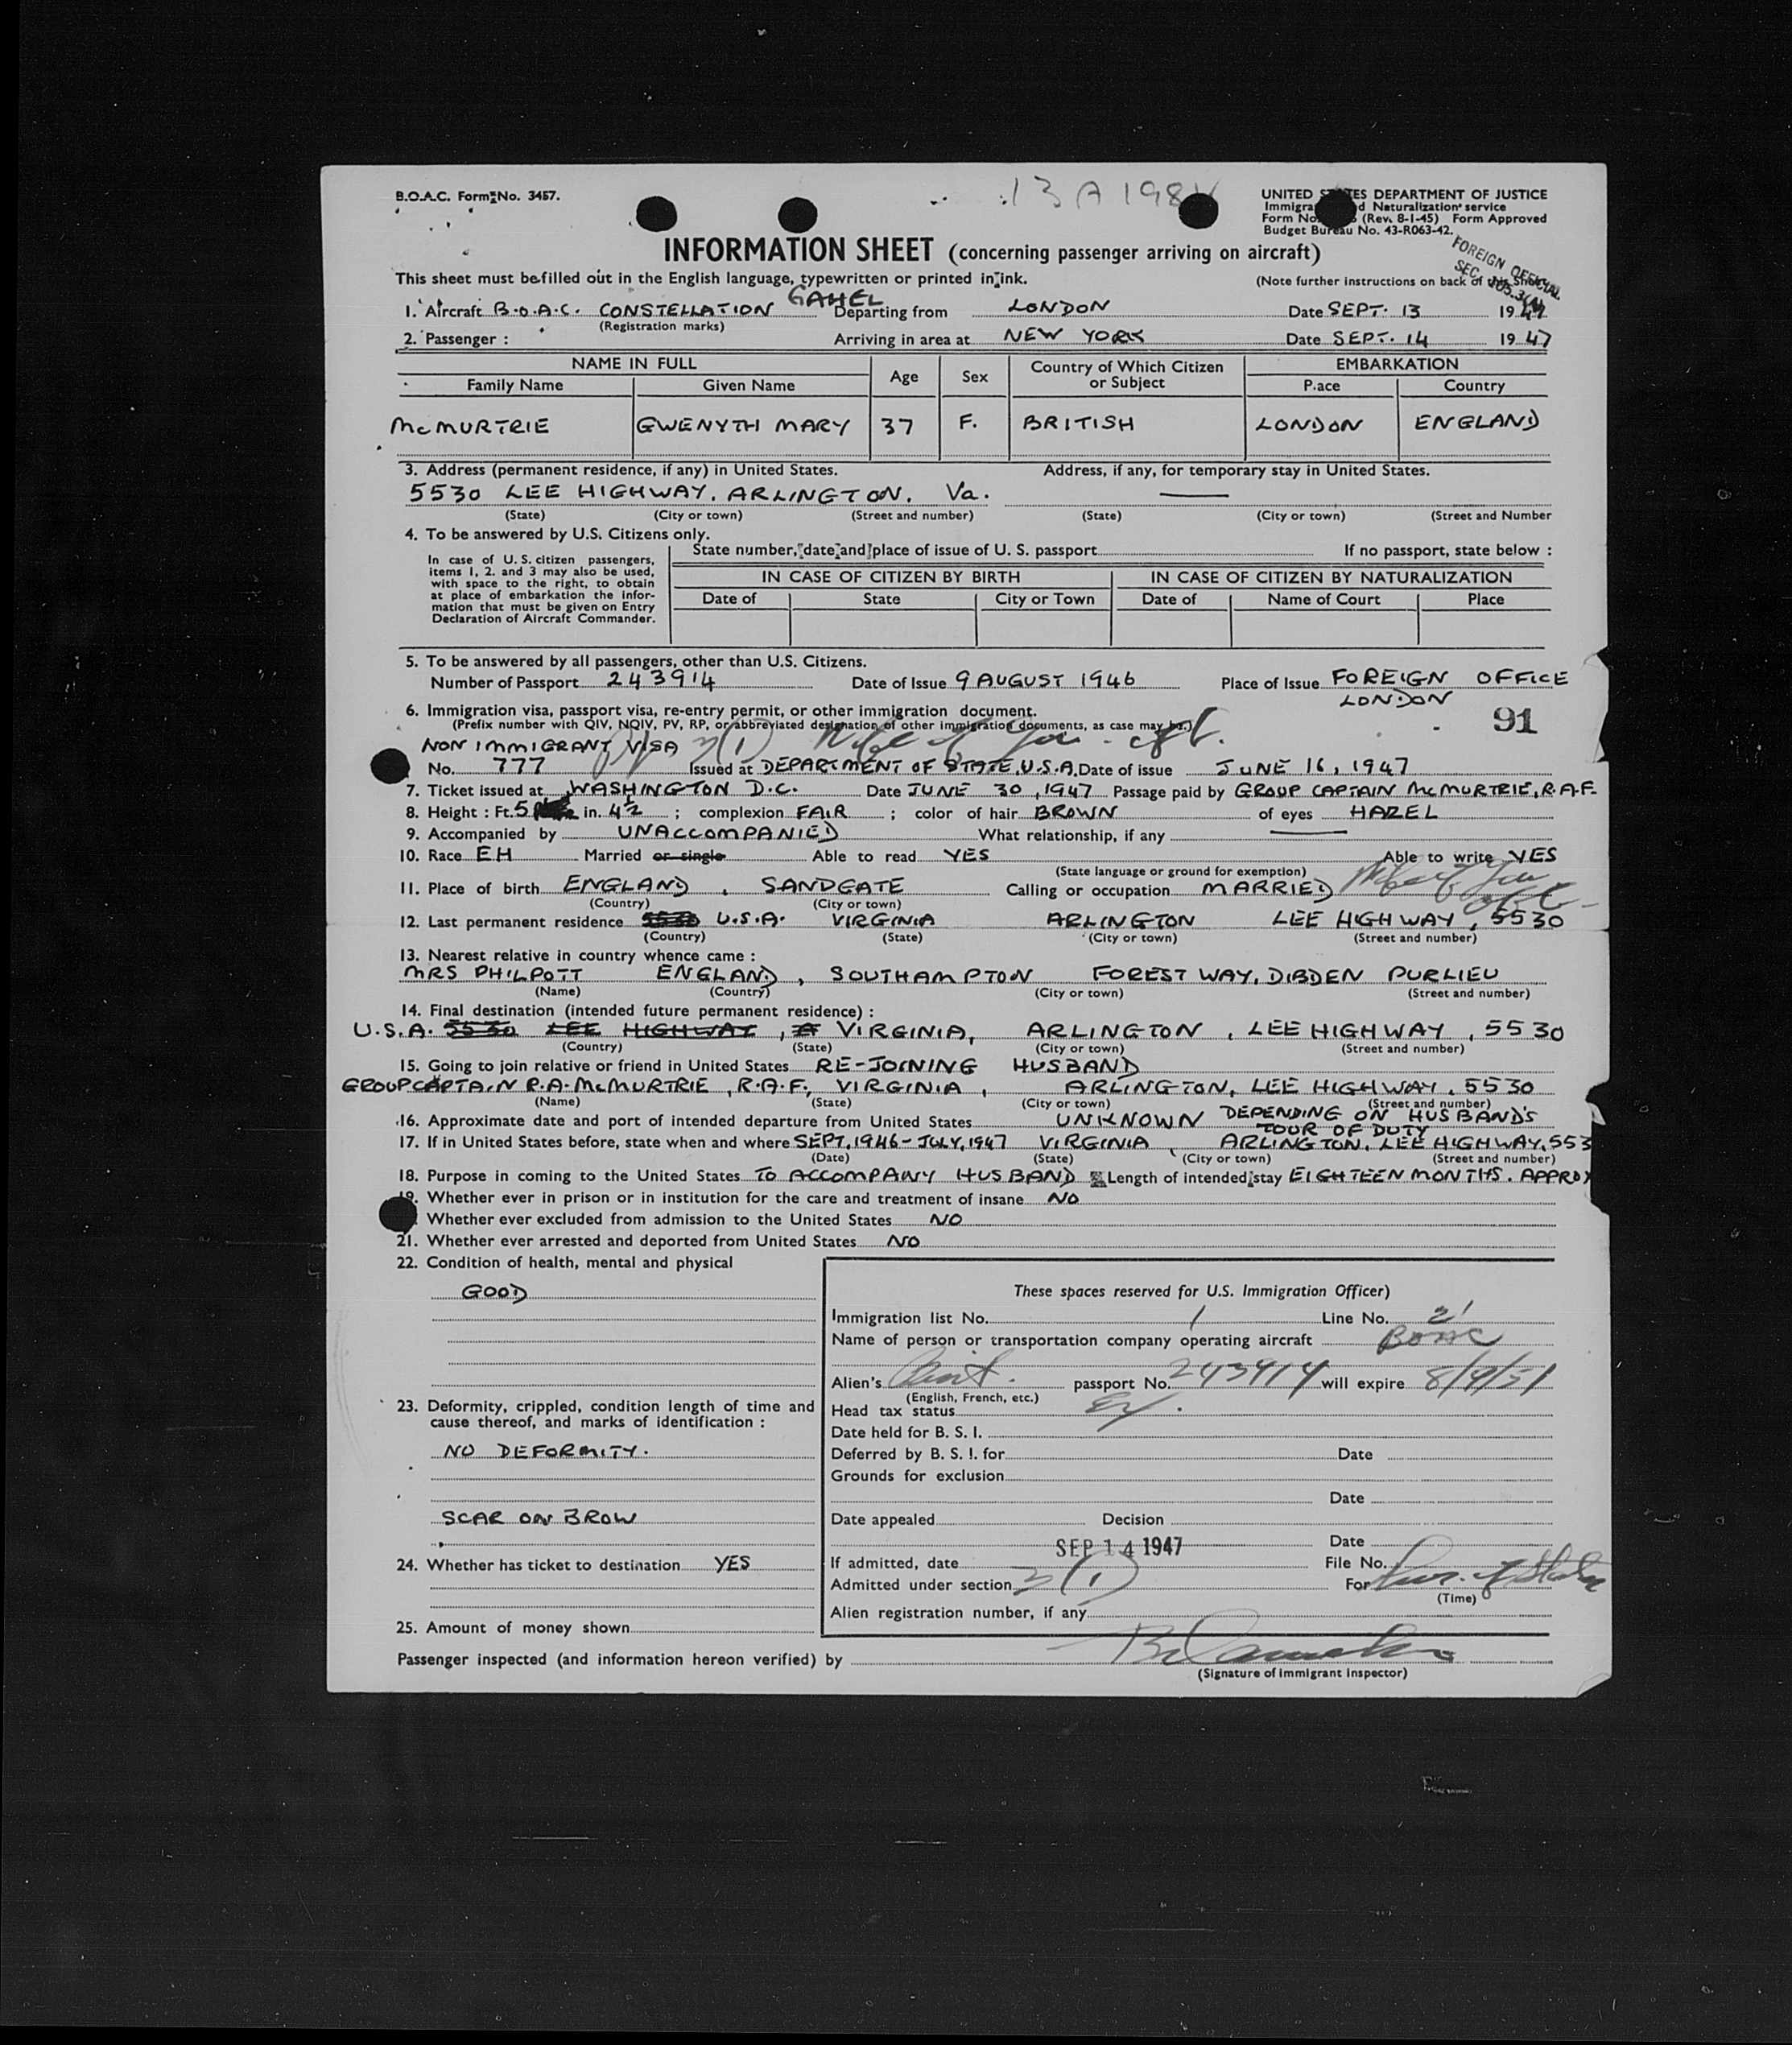 B.O.A.C. Form No. 3457.
13 A 198
UNITED STATES DEPARTMENT OF JUSTICE
Immigra d Naturalization service
Form No. (Rev. 8-1-45) Form Approved
Budget Bureau No. 43-R063-42.
FOREIGN OFFICIAL
SEC.
INFORMATION SHEET (concerning passenger arriving on aircraft)
This sheet must be filled out in the English language, typewritten or printed in ink. (Note further instructions on back of this Sheet)
1. Aircraft B.O.A.C. CONSTELLATION GAHEL Departing from LONDON Date SEPT. 13 1947
(Registration marks)
2. Passenger : Arriving in area at NEW YORK Date SEPT. 14 1947
NAME IN FULL Age Sex Country of Which Citizen or Subject EMBARKATION
Family Name Given Name Place Country
McMURTRIE GWENYTH MARY 37 F. BRITISH LONDON ENGLAND
3. Address (permanent residence, if any) in United States. Address, if any, for temporary stay in United States.
5530 LEE HIGHWAY. ARLINGTON. Va. —
(State) (City or town) (Street and number) (State) (City or town) (Street and Number
4. To be answered by U.S. Citizens only.
In case of U.S. citizen passengers, items 1, 2. and 3 may also be used, with space to the right, to obtain at place of embarkation the information that must be given on Entry Declaration of Aircraft Commander.
State number, date and place of issue of U. S. passport If no passport, state below :
IN CASE OF CITIZEN BY BIRTH IN CASE OF CITIZEN BY NATURALIZATION
Date of State City or Town Date of Name of Court Place
5. To be answered by all passengers, other than U.S. Citizens.
Number of Passport 243914 Date of Issue 9 AUGUST 1946 Place of Issue FOREIGN OFFICE
LONDON
6. Immigration visa, passport visa, re-entry permit, or other immigration document. 91
(Prefix number with QIV, NQIV, PV, RP, or abbreviated designation of other immigration documents, as case may be.)
NON IMMIGRANT VISA 3(1) Wife of Gov. off.
No. 777 Issued at DEPARTMENT OF STATE. U.S.A. Date of issue JUNE 16, 1947
7. Ticket issued at WASHINGTON D.C. Date JUNE 30, 1947 Passage paid by GROUP CAPTAIN McMURTRIE, R.A.F.
8. Height : Ft. 5 in. 4½ ; complexion FAIR ; color of hair BROWN of eyes HAZEL
9. Accompanied by UNACCOMPANIED What relationship, if any —
10. Race EH Married or single Able to read YES Able to write YES
(State language or ground for exemption)
11. Place of birth ENGLAND, SANDGATE Calling or occupation MARRIED Wife of Gov off
(Country) (City or town)
12. Last permanent residence 5530 U.S.A. VIRGINIA ARLINGTON LEE HIGHWAY, 5530
(Country) (State) (City or town) (Street and number)
13. Nearest relative in country whence came :
MRS PHILPOTT ENGLAND, SOUTHAMPTON FOREST WAY, DIBDEN PURLIEU
(Name) (Country) (City or town) (Street and number)
14. Final destination (intended future permanent residence) :
U.S.A. 5530 LEE HIGHWAY, A VIRGINIA, ARLINGTON, LEE HIGHWAY, 5530
(Country) (State) (City or town) (Street and number)
15. Going to join relative or friend in United States RE-JOINING HUSBAND
GROUP CAPTAIN R.A. McMURTRIE, R.A.F. VIRGINIA, ARLINGTON, LEE HIGHWAY, 5530
(Name) (State) (City or town) (Street and number)
16. Approximate date and port of intended departure from United States UNKNOWN DEPENDING ON HUSBAND'S
TOUR OF DUTY
17. If in United States before, state when and where SEPT. 1946 - JULY, 1947 VIRGINIA ARLINGTON, LEE HIGHWAY, 553
(Date) (State) (City or town) (Street and number)
18. Purpose in coming to the United States TO ACCOMPANY HUSBAND Length of intended stay EIGHTEEN MONTHS. APPROX
19. Whether ever in prison or in institution for the care and treatment of insane NO
Whether ever excluded from admission to the United States NO
21. Whether ever arrested and deported from United States NO
22. Condition of health, mental and physical
GOOD
These spaces reserved for U.S. Immigration Officer)
Immigration list No. 1 Line No. 21
Name of person or transportation company operating aircraft BOAC
Alien's Brit. passport No. 243914 will expire 8/9/51
(English, French, etc.)
Head tax status Ex.
Date held for B. S. I.
Deferred by B. S. I. for Date
Grounds for exclusion
Date
Date appealed Decision
Date
If admitted, date SEP 14 1947 File No.
Admitted under section 3(1) For Dur. of Status
(Time)
Alien registration number, if any
23. Deformity, crippled, condition length of time and
cause thereof, and marks of identification :
NO DEFORMITY.
SCAR ON BROW
24. Whether has ticket to destination YES
25. Amount of money shown
Passenger inspected (and information hereon verified) by
(Signature of Immigrant Inspector)